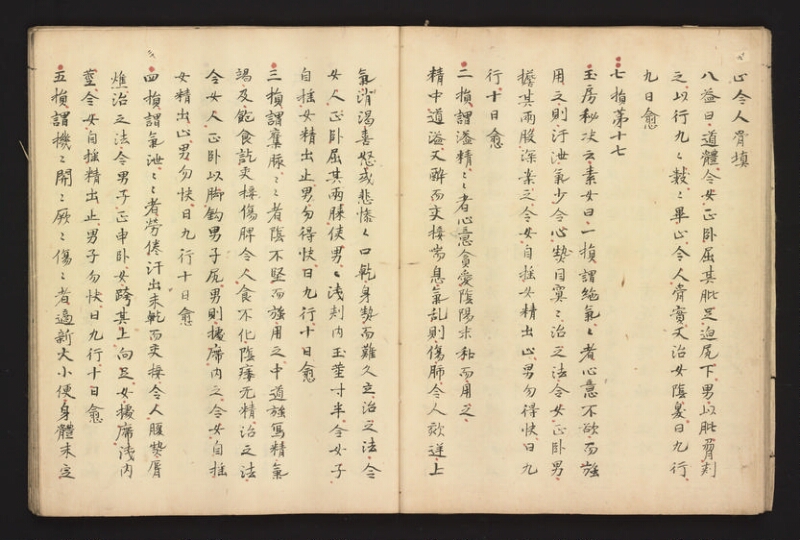 止令人骨填
八益曰道體令女正卧屈其肶足迫尻下男以肶脅刾
之以行九〻數〻畢止令人骨實又治女陰臭日九行
九日愈
七損第十七
玉房秘决云素女曰一損謂絶氣〻者心意不欲而強
用之則汙泄氣少令心熱目冥〻治之法令女正卧男
擔其兩股深案之令女自搖女精出止男勿得快日九
行十日愈
二損謂溢精〻者心意貪愛陰陽未和而用之
精中道溢又醉而交接喘息氣乱則傷肺令人欬逆上
氣消渴喜怒或悲慘〻口乾身熱而難久立治之法令
女人正卧屈其兩膝俠男〻淺刾内玉莖寸半令女子
自搖女精出止男勿得快日九行十日愈
三損謂奪脉〻者陰不堅而強用之中道強寫精氣
竭及飽食訖交接傷脾令人食不化陰痿无精治之法
令女人正卧以脚鈎男子尻男則據席内之令女自搖
女精出止男勿快日九行十日愈
四損謂氣泄〻者勞倦汗出未乾而交接令人腹熱脣
燋治之法令男子正申卧女跨其上向足女據席淺内
莖令女自搖精出止男子勿快日九行十日愈
五損謂機〻開〻厥〻傷〻者適新大小便身體未定